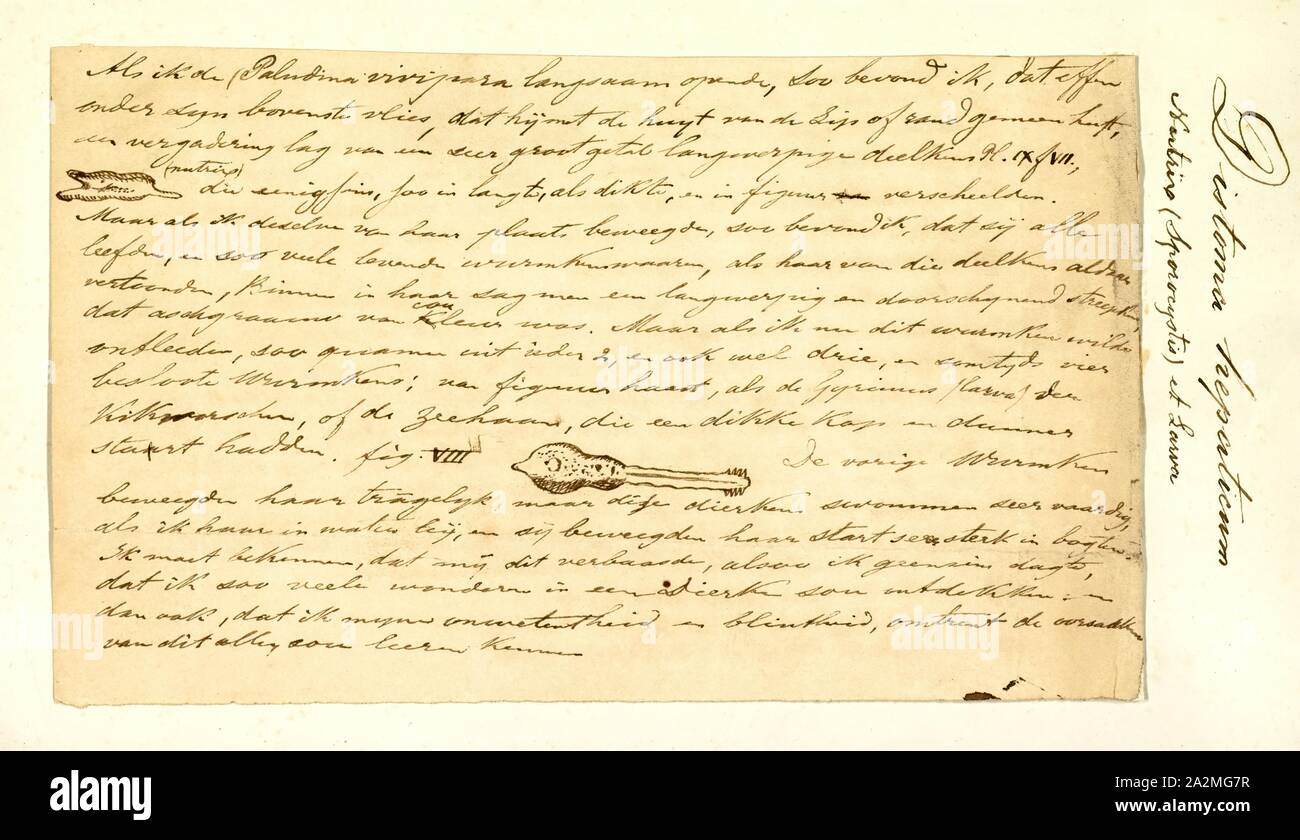 Als ik de (Paludina vivipara langsaam opende, soo bevond ik, dat effen
onder syn bovenste vlies, dat hij met de huyt van de Lip of rand gemeen heeft,
een vergadering lag van een seer groot getal langwerpige deelkens Pl. IX f VII.,
(nutrix)
die eenigsins, soo in langte, als dikte, en in figuur verscheelden.
Maar als ik deselve van haar plaats beweegde, soo bevond ik, dat sij alle
leefden, en soo veele levende wurmkens waaren, als haar van die deelkens aldaar
vertoonden, Binnen in haar sag men een langwerpig en doorschynend streepken,
dat aschgraauw van couleur was. Maar als ik nu dit wurmken wilde
ontleeden, soo quamen uit ieder 2, en ook wel drie, en somtyds vier
beslote Wurmkens; van figuur haest, als de Gyrinus (larva) der
Kikvorschen, of de Zeehaan, die een dikke Kop en dunner
staart hadden. fig. VIII De vorige Wurmken
beweegden haar traegelyk maar dise dierkens swommen seer vaardig,
als ik haar in water leij, en sij beweegden haar start seer sterk in bogten
Ik moet bekennen, dat mij dit verbaasde, alsoo ik geensins dagt,
dat ik soo veele wonderen in een Dierke sou ontdekken: en
dan ook, dat ik myne onwetentheid en blintheid, omtrent de oorsaken
van dit alles, sou leeren kennen
Distoma hepaticum
Nutrix (Sporocystis) et Larva
alamy
Image ID: 2A2MG7R
www.alamy.com